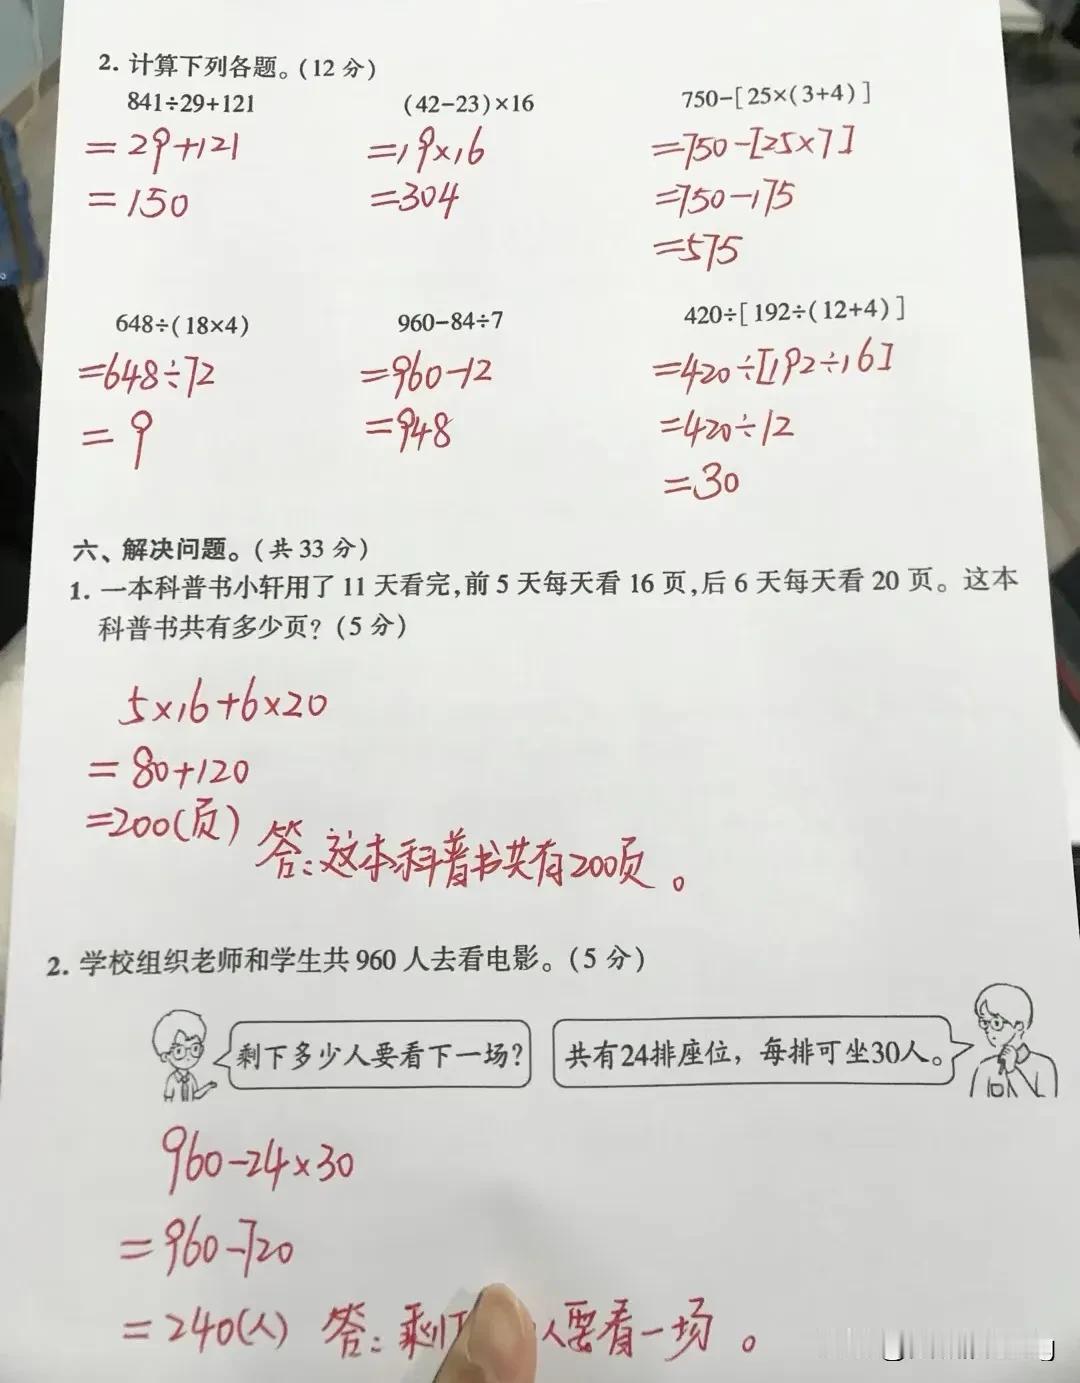 2. 计算下列各题。(12 分)
841÷29+121 (42-23)×16 750-[25×(3+4)]
=29+121 =19×16 =750-[25×7]
=150 =304 =750-175
=575
648÷(18×4) 960-84÷7 420÷[192÷(12+4)]
=648÷72 =960-12 =420÷[192÷16]
=9 =948 =420÷12
=30
六、解决问题。(共 33 分)
1. 一本科普书小轩用了 11 天看完,前 5 天每天看 16 页,后 6 天每天看 20 页。这本
科普书共有多少页?(5 分)
5×16+6×20
=80+120
=200(页) 答:这本科普书共有200页。
2. 学校组织老师和学生共 960 人去看电影。(5 分)
剩下多少人要看下一场? 共有24排座位，每排可坐30人。
960-24×30
=960-720
=240(人) 答:剩下 人要看一场。